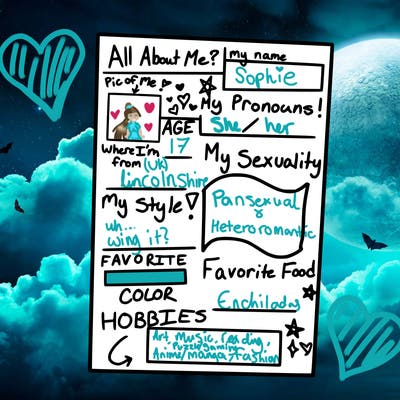 All About Me?
my name
Sophie
Pic of Me!
My Pronouns!
She/her
AGE
17
Where I'm from (UK)
lincolnshire
My Sexuality
Pansexual
&
Heteroromantic
My Style!
uh...
wing it?
FAVORITE
COLOR
Favorite Food
Enchiladas
HOBBIES
Art, Music, reading,
Puzzle gaming
Anime/manga, fashion